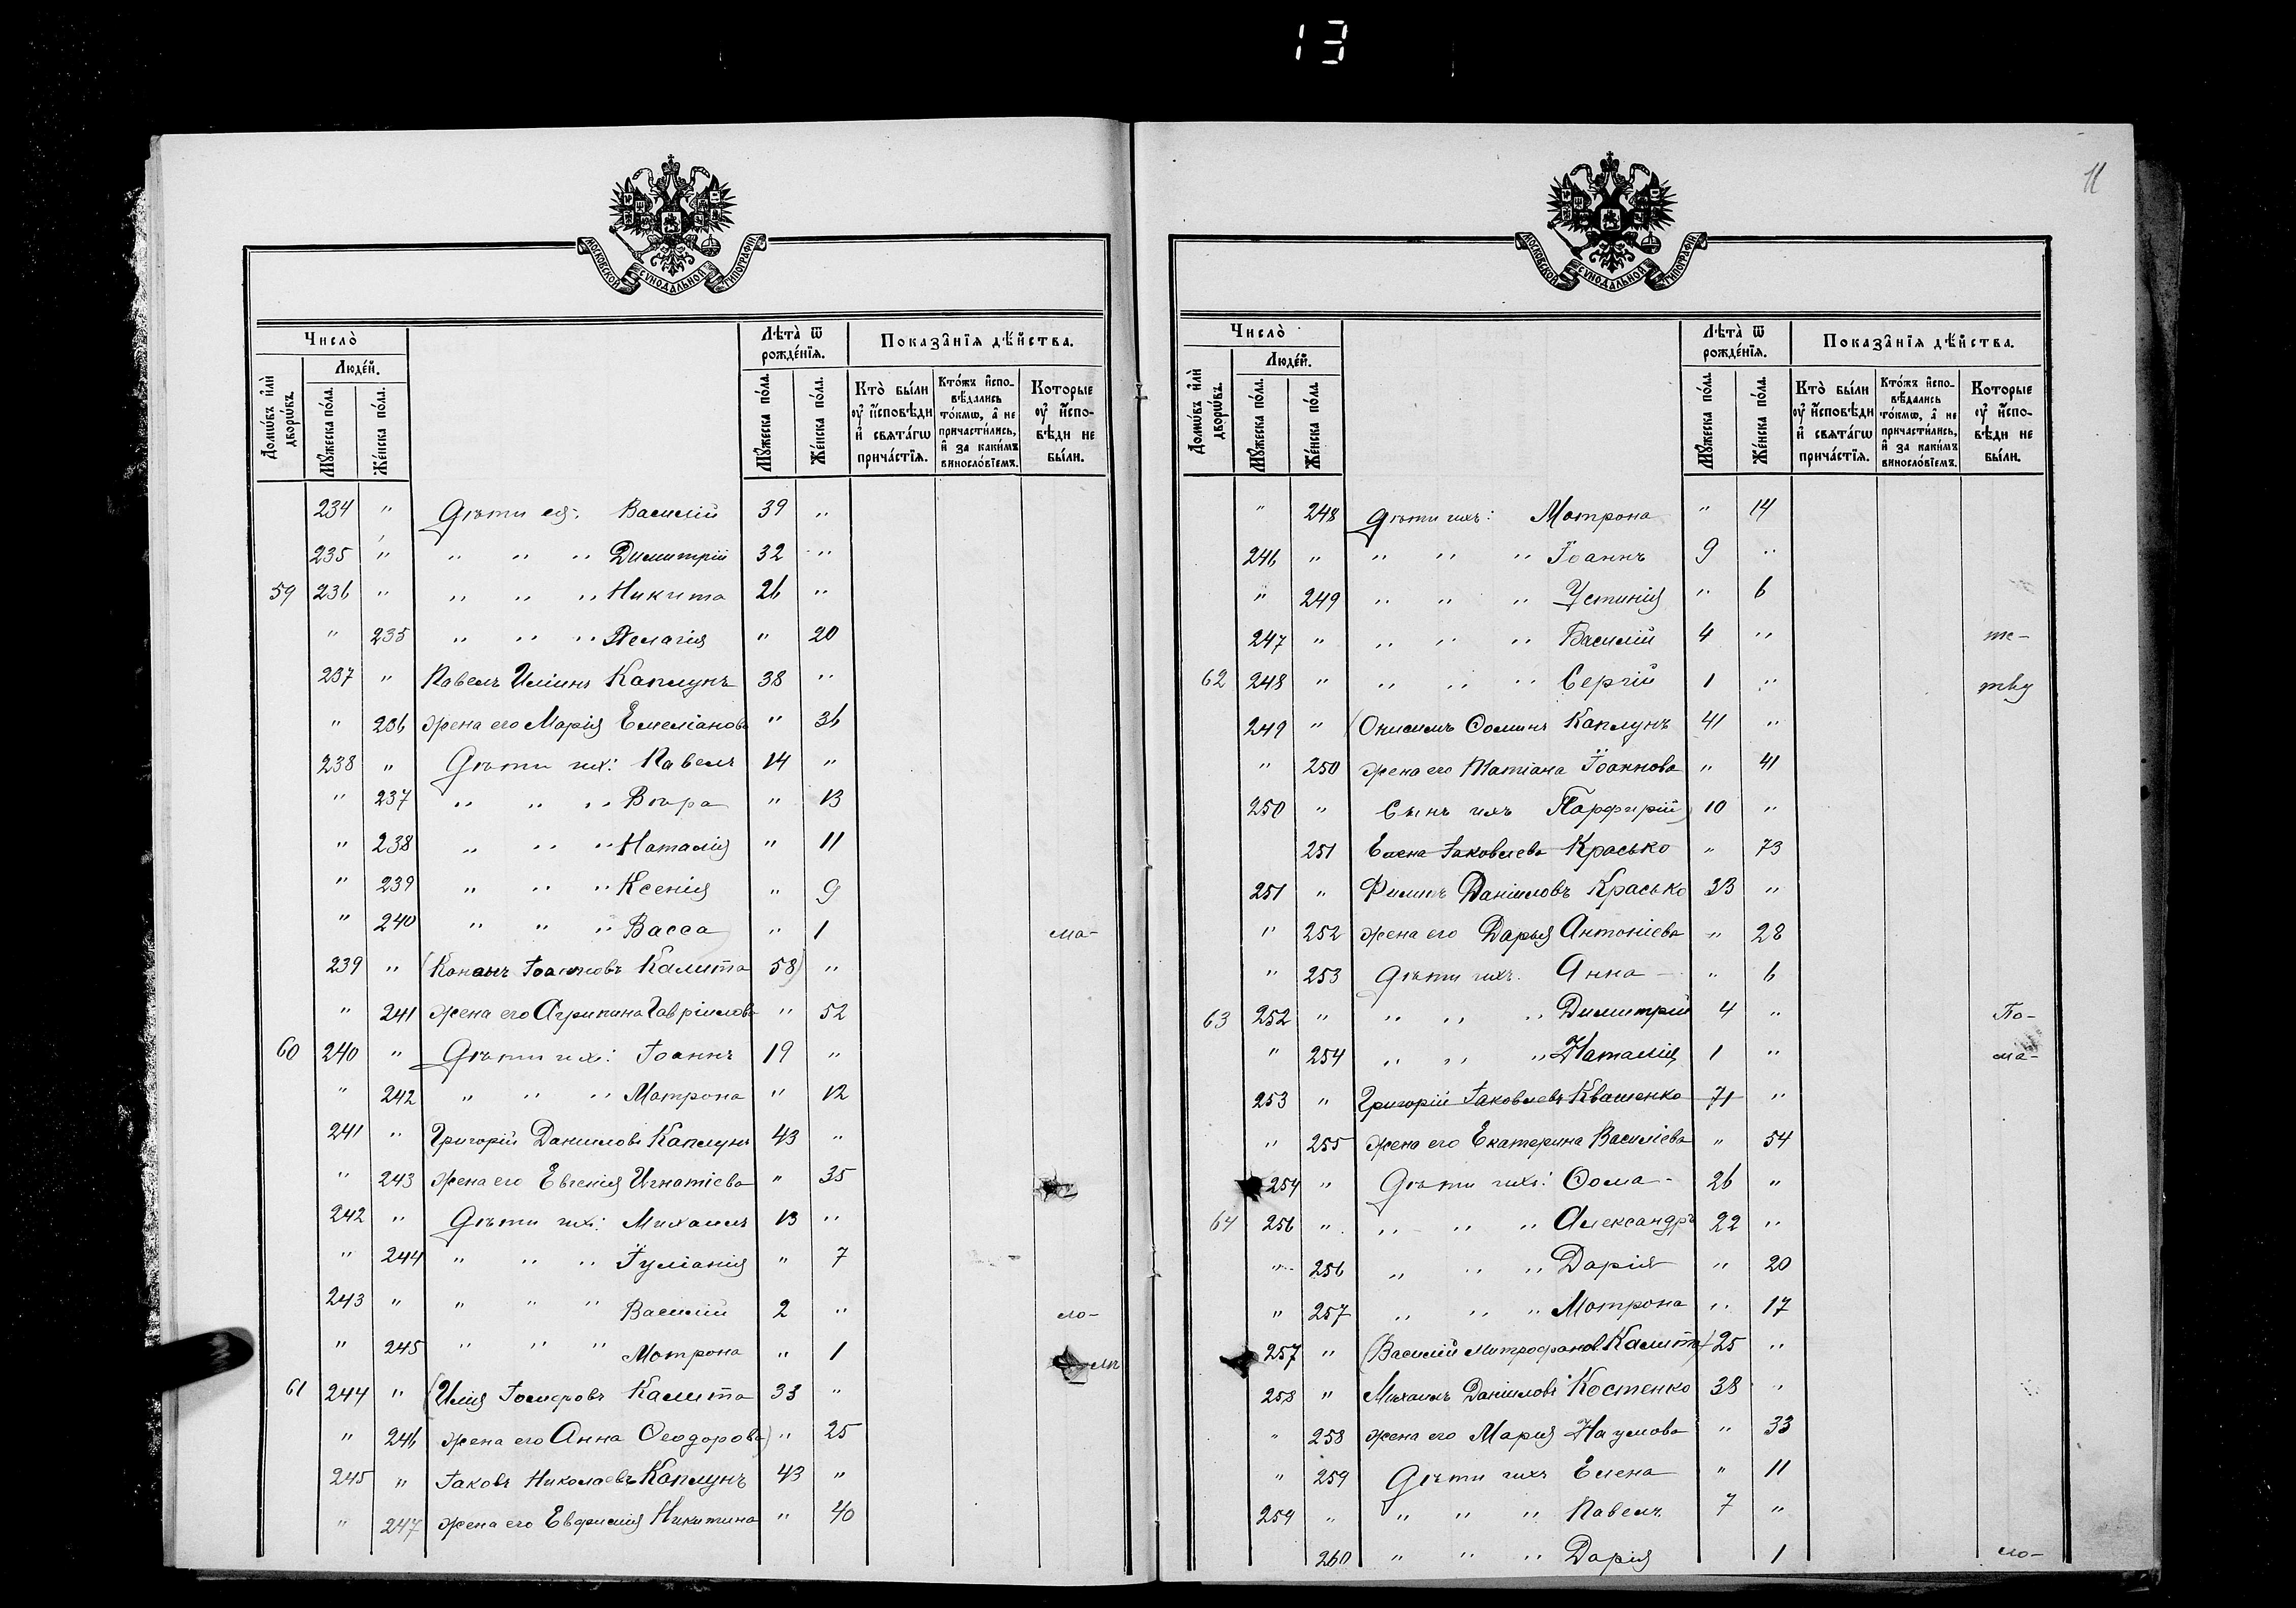 13
11
МОСКОВСКОЙ СУНОДАЛЬНОЙ ТИПОГРАФІИ
Число̀
Людей.
Домѡвъ илѝ дворѡвъ.
Мꙋжеска по́ла.
Же́нска по́ла.
Лѣта̀ ѿ рожде́нїѧ.
Мꙋжеска по́ла.
Же́нска по́ла.
Показа̑нїѧ дѣ́йства.
Кто̀ бы́ли ᲂу҆ и҆сповѣди и҆ свѧта́гѡ прича́стїѧ.
Кто́жъ и҆спо-вѣдались то́кмѡ, а҆ не причасти́лись, и҆ за каки́мъ винослѡ́вїемъ.
Которые ᲂу҆ и҆спо-вѣди не бы́ли.
234 " Дѣти ея: Василій 39 "
235 " " " " Димитрій 32 "
59 236 " " " " Никита 26 "
" 235 " " " Пелагія " 20
237 " Павелъ Иліинъ Каплунъ 38 "
" 236 жена его Марія Емеліанова " 36
238 " Дѣти их: Павелъ 14 "
" 237 " " " Вѣра " 13
" 238 " " " Наталія " 11
" 239 " " " Ксенія " 9
" 240 " " " Васса " 1 ма-
239 " (Кононъ Іоанновъ Калита 58) "
" 241 жена его Агрипина Гавріилова " 52
60 240 " Дѣти их: Іоаннъ 19 "
" 242 " " " Матрона " 12
241 " Григорій Даниловъ Каплунъ 43 "
" 243 жена его Евгенія Игнатіева " 35
242 " Дѣти их: Михаилъ 13 "
" 244 " " " Іуліанія " 7
243 " " " " Василій 2 " ло-
" 245 " " " Мотрона " 1
61 244 " (Илія Іосифовъ Калита 33 "
" 246 жена его Анна Ѳеодорова) " 25
245 " Іаковъ Николаевъ Каплунъ 43 "
" 247 жена его Евфимія Никитина " 40
Число̀
Людей.
Домѡвъ илѝ дворѡвъ.
Мꙋжеска по́ла.
Же́нска по́ла.
Лѣта̀ ѿ рожде́нїѧ.
Мꙋжеска по́ла.
Же́нска по́ла.
Показа̑нїѧ дѣ́йства.
Кто̀ бы́ли ᲂу҆ и҆сповѣди и҆ свѧта́гѡ прича́стїѧ.
Кто́жъ и҆спо-вѣдались то́кмѡ, а҆ не причасти́лись, и҆ за каки́мъ винослѡ́вїемъ.
Которые ᲂу҆ и҆спо-вѣди не бы́ли.
" 248 Дѣти ихъ: Мотрона " 14
246 " " " " Іоаннъ 9 "
" 249 " " " Устинія " 6
247 " " " " Василій 4 "
62 248 " " " " Сергій 1 "
249 " (Онисимъ Ѳоминъ Каплунъ 41 "
" 250 жена его Татіана Іоаннова " 41
250 " Сынъ ихъ Парфирій) 10 "
251 Елена Іаковлева Красько " 73
251 " Филипъ Даніиловъ Красько 33 "
" 252 жена его Дарья Антоніева " 28
" 253 Дѣти ихъ: Анна " 6
63 252 " " " " Димитрій 4 " По-
" 254 " " " Наталія 1 " ма-
253 " Григорій Іаковлевъ Квашенко 71 "
" 255 жена его Екатерина Василіева " 54
254 " Дѣти ихъ: Ѳома 26 "
64 256 " " " " Александръ 22 "
" 256 " " " Дарія " 20
" 257 " " " Мотрона " 17
257 " (Василій Митрофанов. Калита) 25 "
258 " Михаилъ Даніиловъ Костенко 38 "
" 258 жена его Марія Наумова " 33
" 259 Дѣти ихъ Елена " 11
259 " " " " Павелъ 7 "
260 " " " Дарія 1 ло-